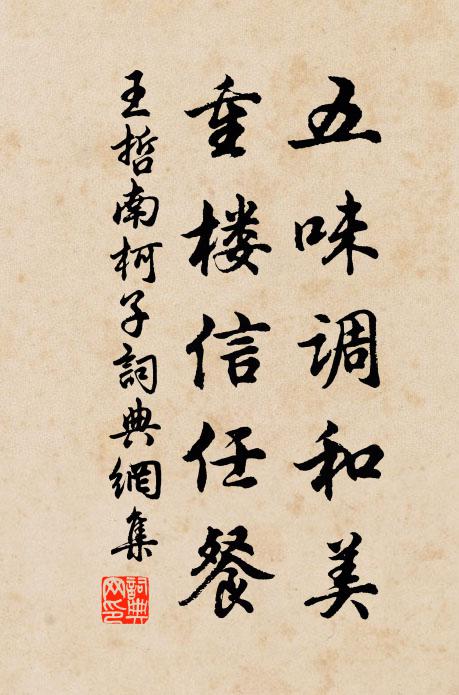 五味调和美
重楼信任餐
王哲南柯子詞典網集
詞典
网印